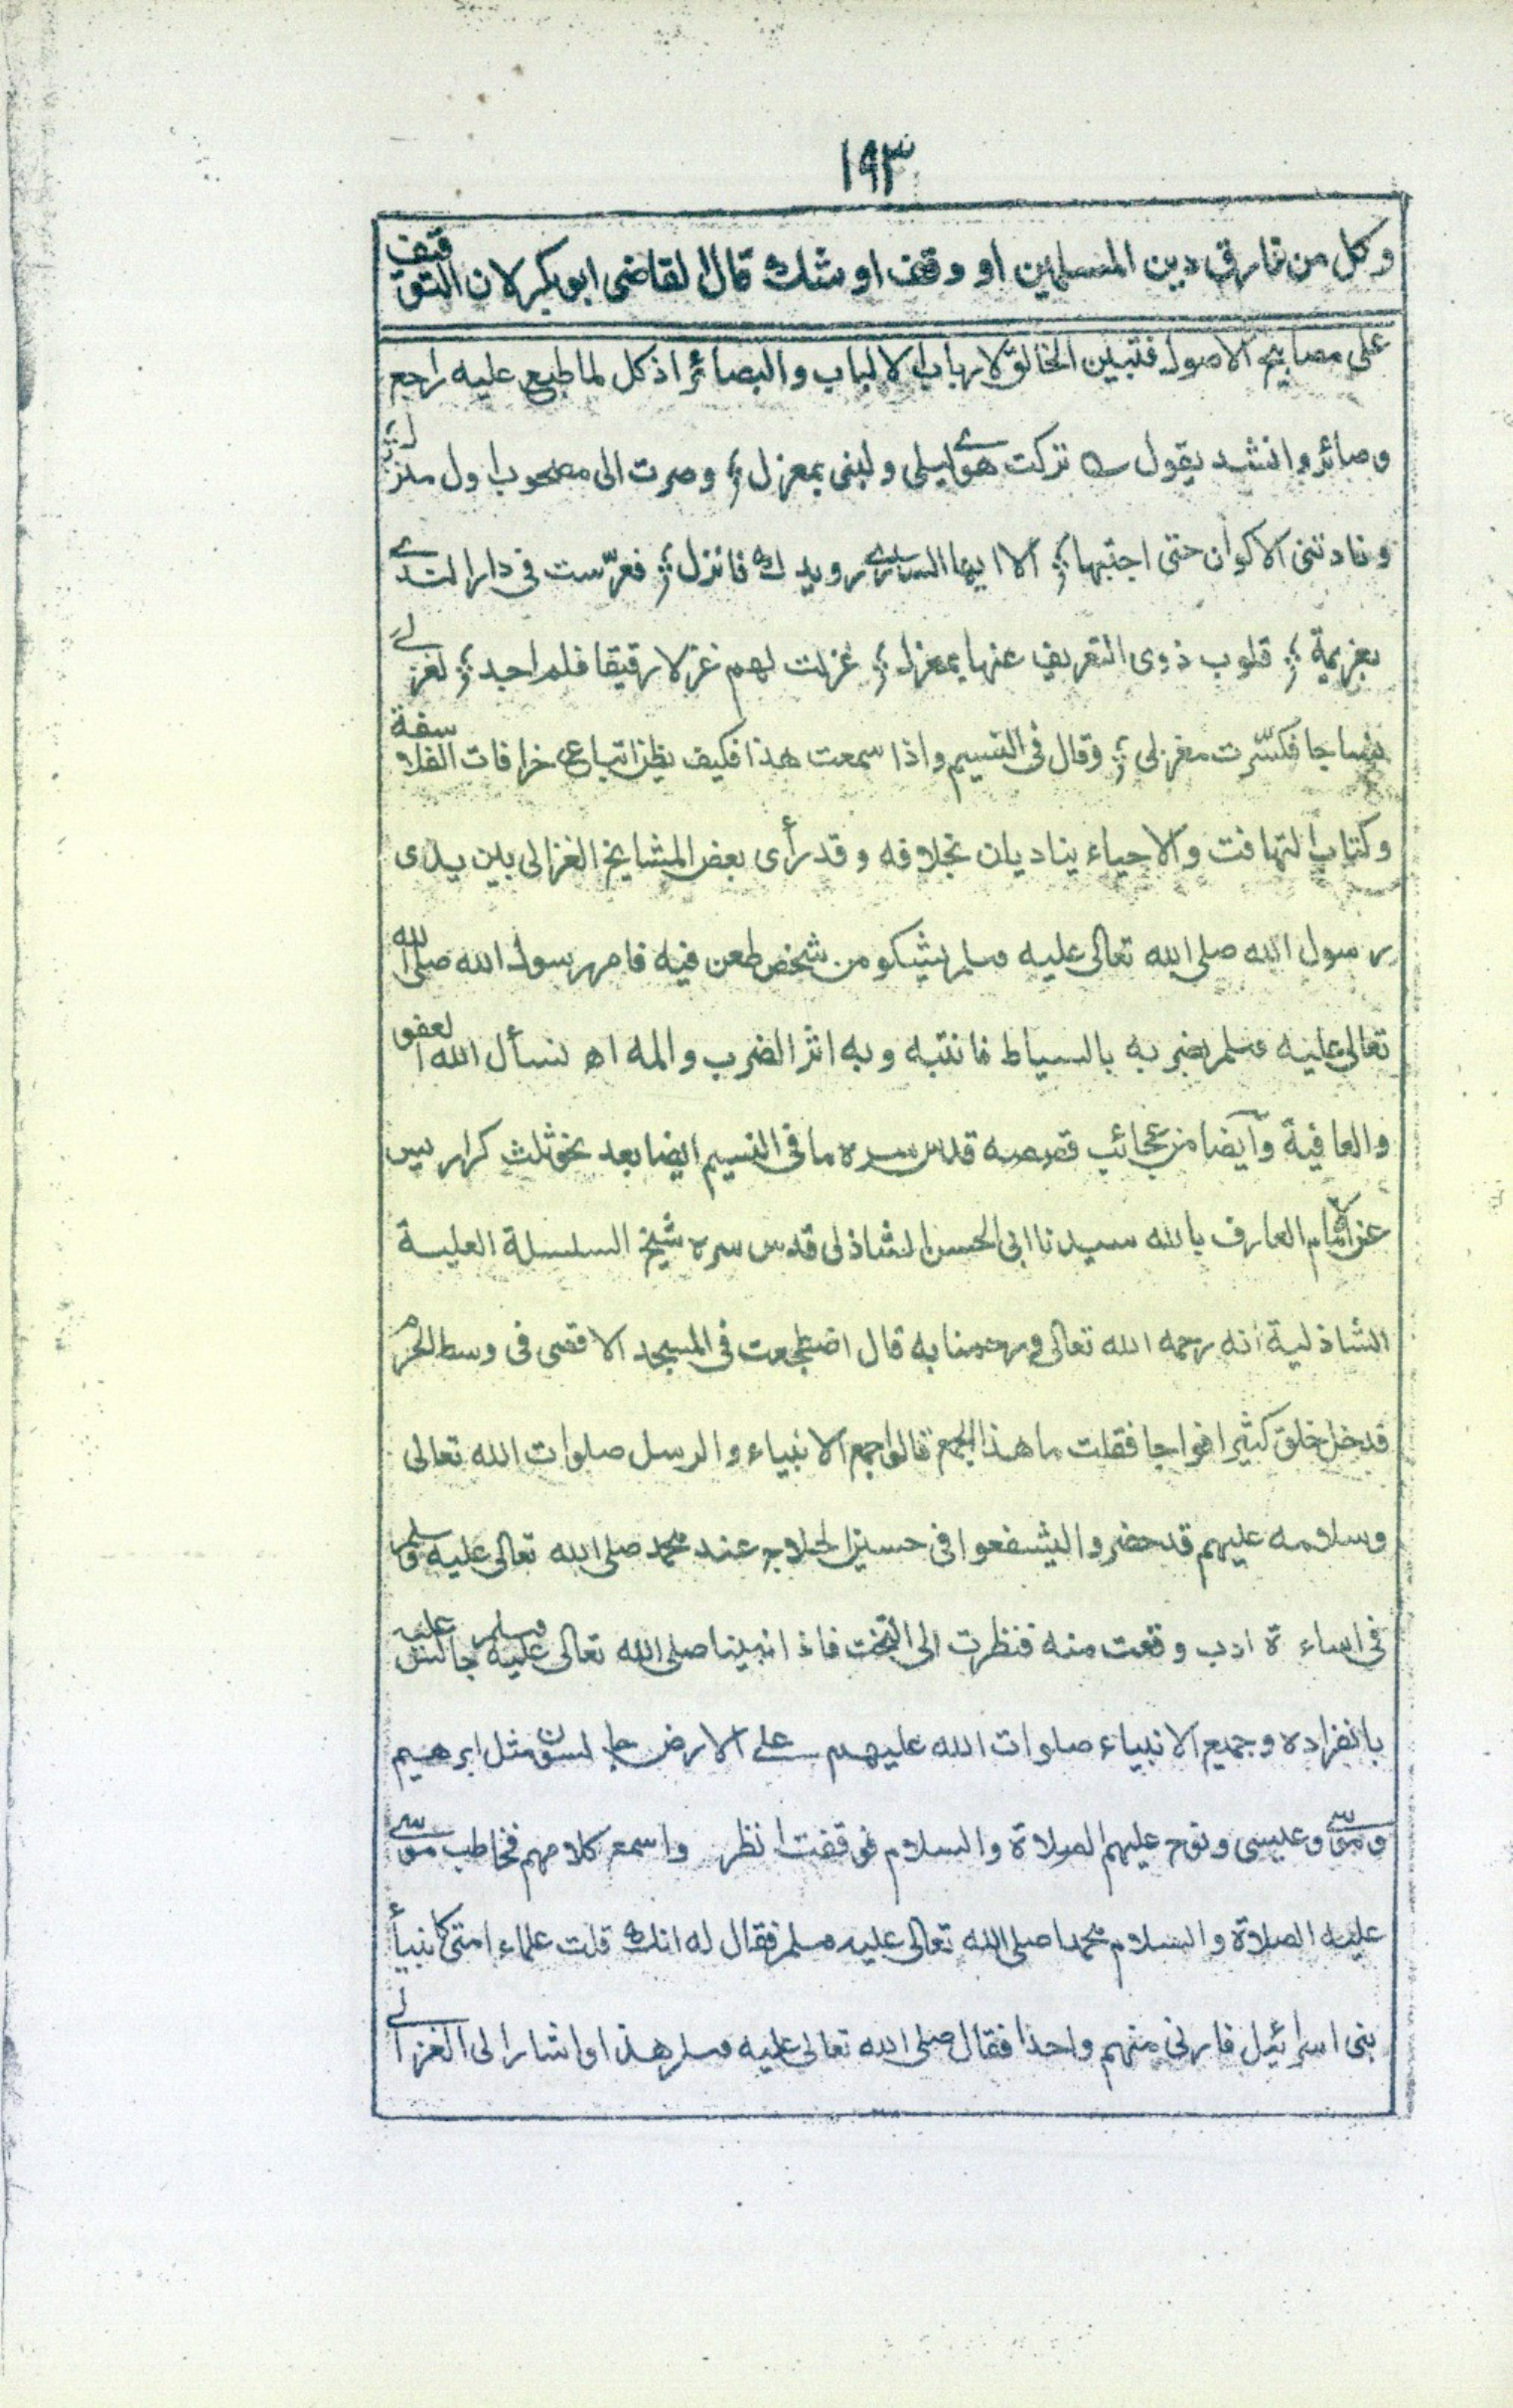 ١٩٣
وكل من فارق دين المسلمين او وقف او شك قال القاضى ابوبكر لان التوقيف
على مصابيح الاصول فتبين الخالق لارباب الالباب والبصائر اذ كل لما طبع عليه راجع
وصائر وانشد يقول تركت هوى ليلى ولبنى بمعزل ؛ وصرت الى مصحوب اول منزل ؛
ونادتنى الاكوان حتى اجبتها ؛ الا ايها السارى رويدك فانزل ؛ فعرّست فى دار الندى
بعزيمة ؛ قلوب ذوى التعريف عنها بمعزل ؛ غزلت لهم غزلا رقيقا فلم اجد ؛ لغزلى
نساجا فكسّرت مغزلى ؛ وقال فى النسيم واذا سمعت هذا فكيف يظن اتباع خرافات الفلاسفة
وكتاب التهافت والاحياء يناديان بخلافه وقد رأى بعض المشايخ الغزالى بين يدى
رسول الله صلى الله تعالى عليه وسلم يشكو من شخص طعن فيه فامر رسول الله صلى الله
تعالى عليه وسلم بضربه بالسياط فانتبه وبه اثر الضرب والمه اه نسأل الله العفو
والعافية وآيضا من عجائب قصصه قدس سره ما فى النسيم ايضا بعد نحو ثلث كراريس
عن الامام العارف بالله سيدنا ابى الحسن الشاذلى قدس سره شيخ السلسلة العلية
الشاذلية انه رحمه الله تعالى ورحمنا به قال اضطجعت فى المسجد الاقصى فى وسط الحرم
فدخل خلق كثير افواجا فقلت ما هذا الجمع قالوا جمع الانبياء والرسل صلوات الله تعالى
وسلامه عليهم قد حضروا ليشفعوا فى حسين الحلاج عند محمد صلى الله تعالى عليه وسلم
فى اساءة ادب وقعت منه فنظرت الى التخت فاذا نبينا صلى الله تعالى عليه وسلم جالس عليه
بانفراده وجميع الانبياء صلوات الله عليهم على الارض جالسون مثل ابرهيم
وموسى وعيسى ونوح عليهم الصلاة والسلام فوقفت انظر واسمع كلامهم فخاطب موسى
عليه الصلاة والسلام محمدا صلى الله تعالى عليه وسلم فقال له انك قلت علماء امتى كانبيأ
بنى اسرائيل فارنى منهم واحدا فقال صلى الله تعالى عليه وسلم هذا واشار الى الغزالى